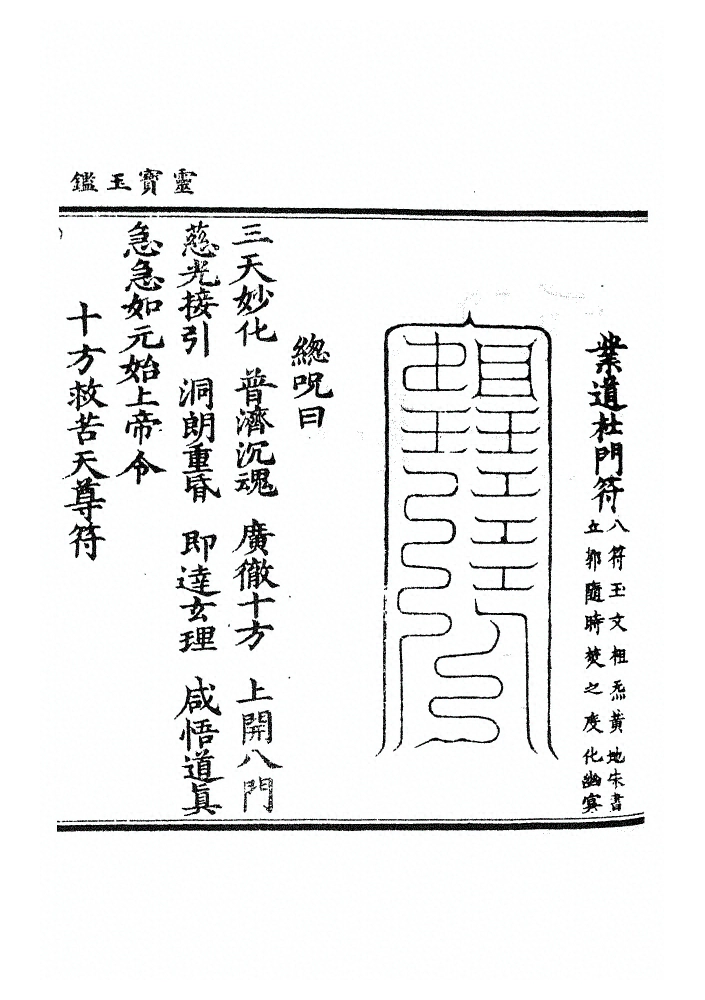 靈寶玉鑑
業道杜門符
八符玉文祖炁黃地朱書
立鄣隨時焚之度化幽冥
總呪曰
三天妙化 普濟沉魂 廣徹十方 上開八門
慈光接引 洞朗重昏 即達玄理 咸悟道眞
急急如元始上帝令
十方救苦天尊符